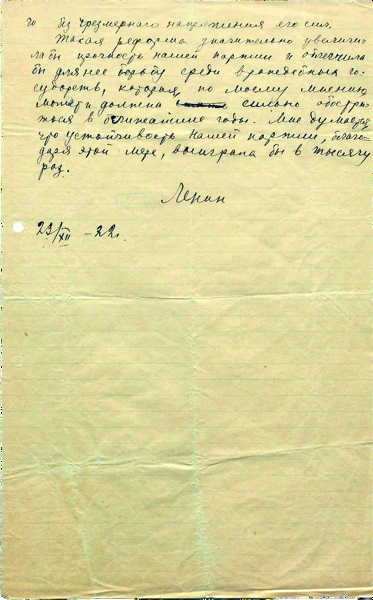 го без чрезмерного напряжения его сил.
Такая реформа значительно увеличи
ла бы прочность нашей партии и облегчила
бы для нее борьбу среди враждебных го-
сударств, которая, по моему мнению,
может и должна сильно обостри
ться в ближайшие годы. Мне думается,
что устойчивость нашей партии, благо-
даря этой мере, выиграла бы в тысячу
раз.
Ленин
23/XII - 22 г.